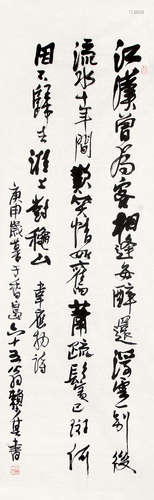 江漢曾為客相逢每醉還浮雲一別後
流水十年間歡笑情如舊蕭疏鬢已斑何
因不歸去淮上對穐山
韋應物詩
庚申歲暮于六十五翁賴少其書